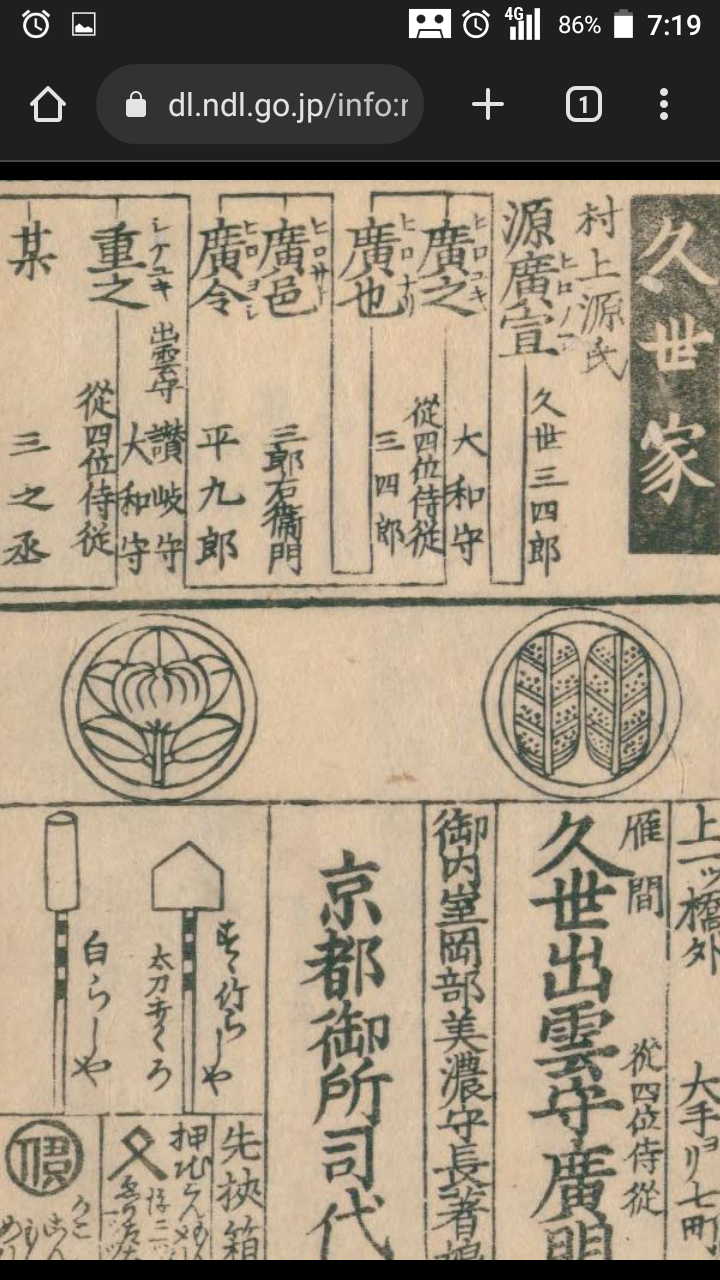 4G
86%
7:19
dl.ndl.go.jp/info:r
1
久世家
村上源氏
源廣宣
久世三四郎
廣之
ヒロユキ
大和守
從四位侍從
廣也
ヒロナリ
三四郎
廣邑
ヒロサト
三郎右衛門
廣令
ヒロヨシ
平九郎
重之
シケユキ
出雲守
讃岐守
大和守
從四位侍從
某
三之丞
上一ッ橋外
大手ヨリ七町
雁間
從四位侍從
久世出雲守廣明
御内室岡部美濃守長著娘
京都御所司代
らしや
太刀
白らしや
先挾箱
押